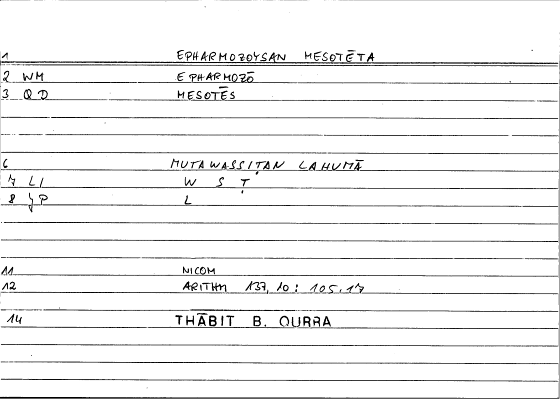 1 EPHARMOZOYSAN MESOTĒTA
2 WM EPHARMOZŌ
3 QD MESOTĒS
6 MUTAWASSIṬAN LAHUMĀ
7 LI W S Ṭ
8 JP L
11 NICOM
12 ARITHM 137,10 : 105.17
14 THĀBIT B. QURRA